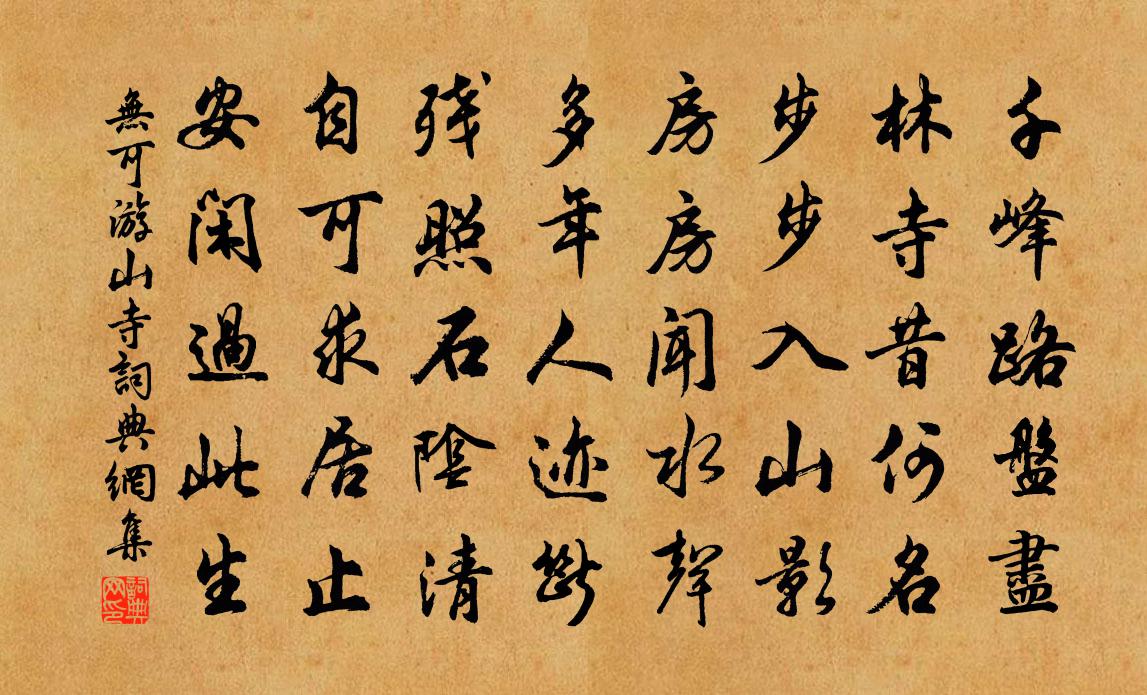 千峰路盤盡
林寺昔何名
步步入山影
房房聞水聲
多年人迹斷
残照石陰清
自可求居止
安閑過此生
無可游山寺詞典網集
詞典網印